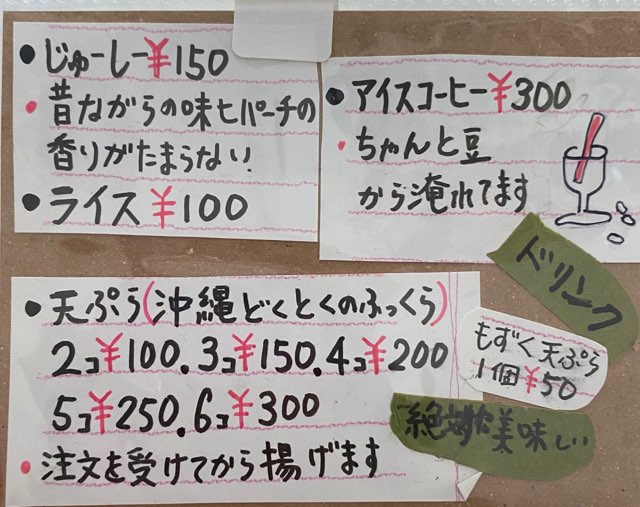 ●じゅーしー¥150
●昔ながらの味ヒパーチの
香りがたまらない!
●ライス¥100
●アイスコーヒー¥300
●ちゃんと豆
から淹れてます
ドリンク
●天ぷら(沖縄どくとくのふっくら)
2コ¥100.3コ¥150.4コ¥200
5コ¥250.6コ¥300
●注文を受けてから揚げます
もずく天ぷら
1個¥50
絶対美味しい